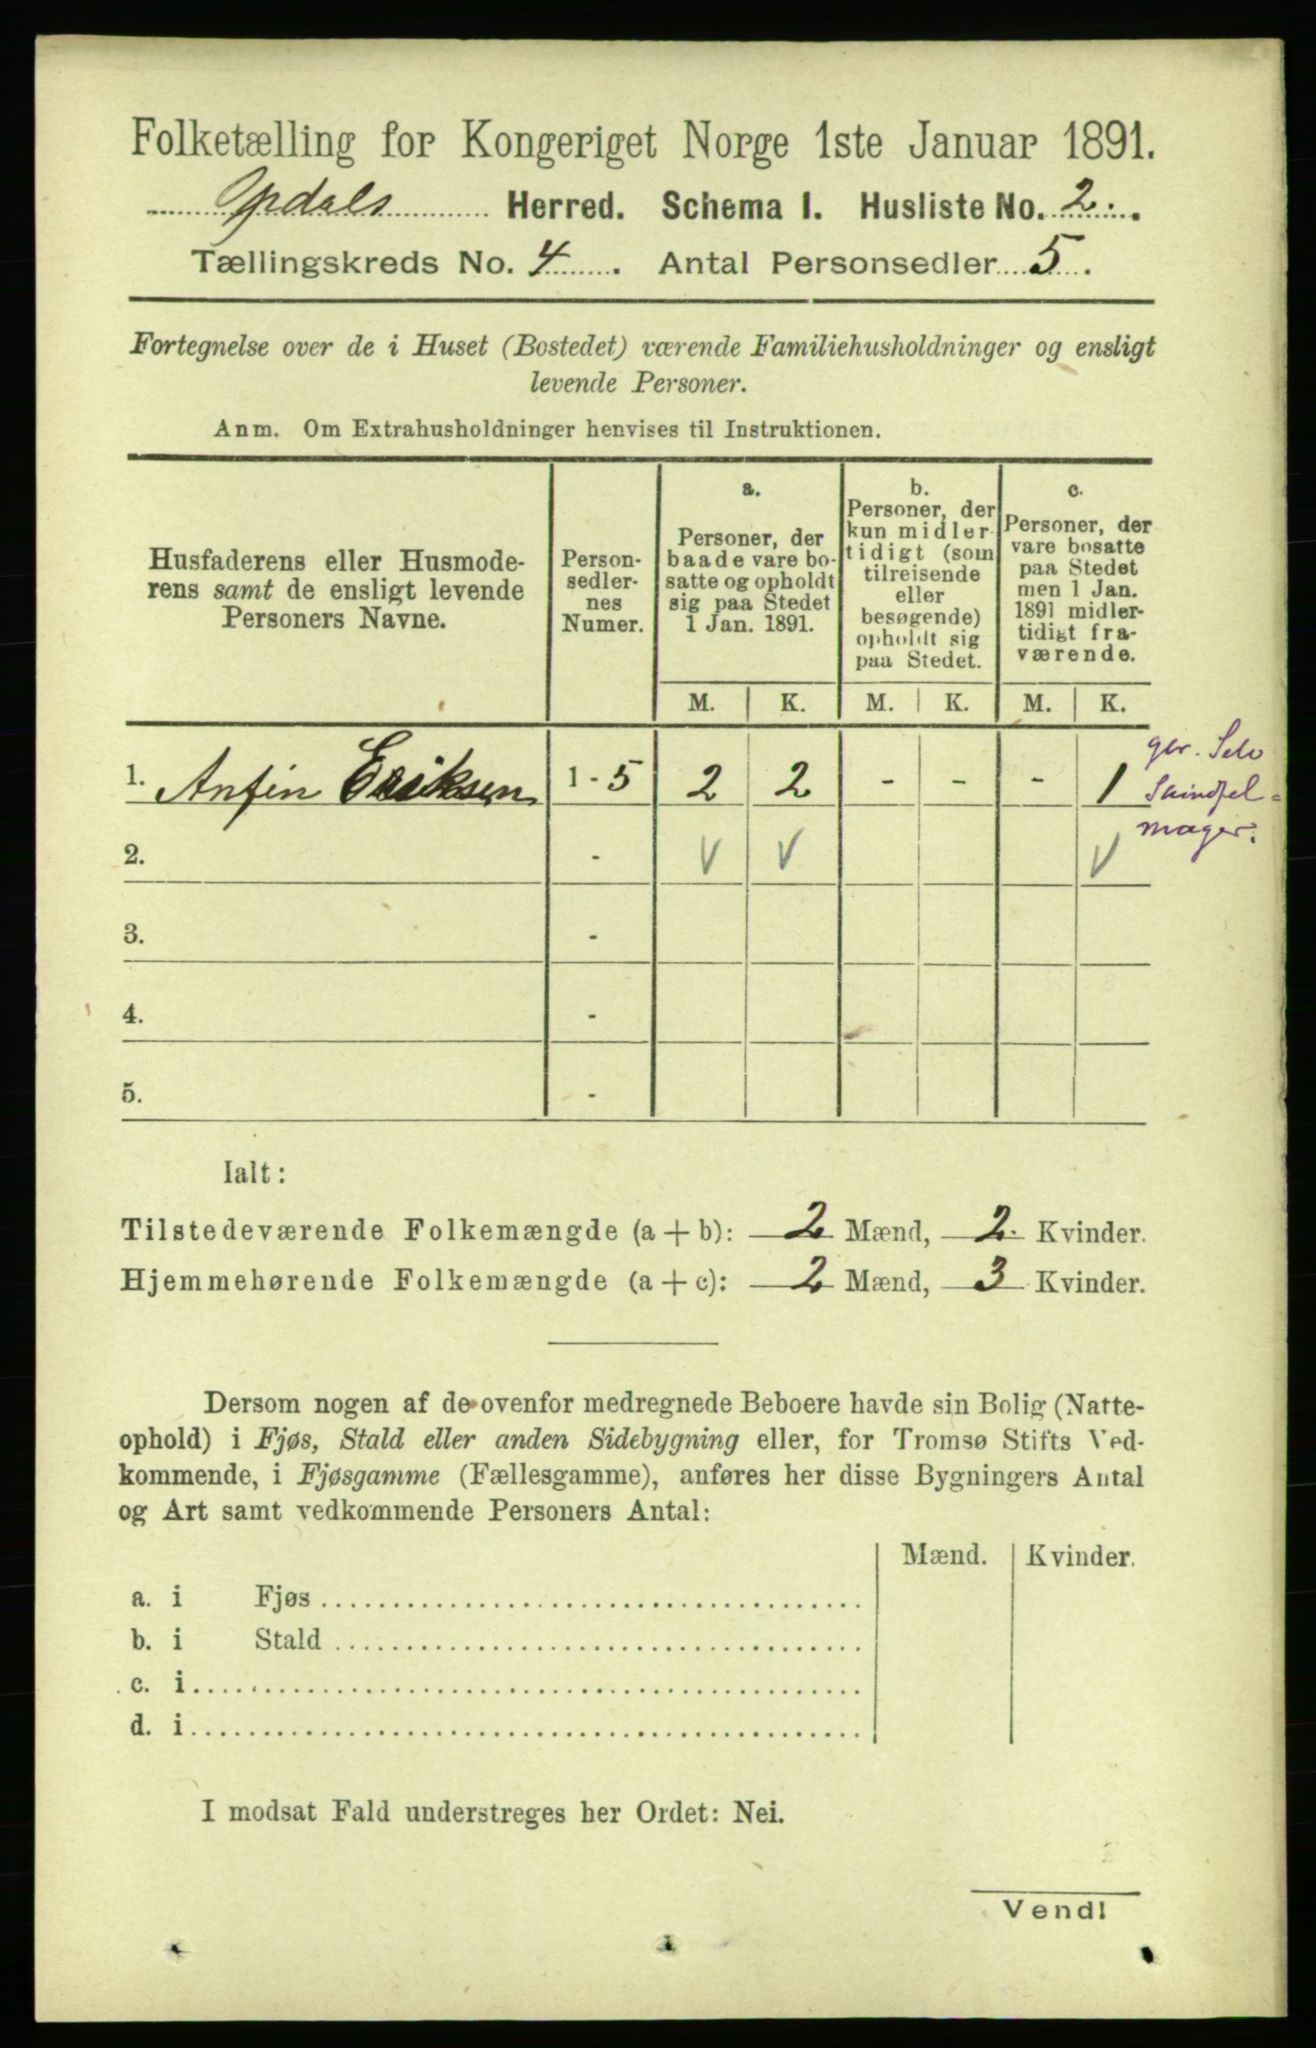 Folketælling for Kongeriget Norge 1ste Januar 1891.
Opdals Herred. Schema I. Husliste No. 2.
Tællingskreds No. 4. Antal Personsedler 5.
Fortegnelse over de i Huset (Bostedet) værende Familiehusholdninger og ensligt
levende Personer.
Anm. Om Extrahusholdninger henvises til Instruktionen.
Husfaderens eller Husmode-
rens samt de ensligt levende
Personers Navne.
Person-
sedler-
nes
Numer.
a.
Personer, der
baade vare bo-
satte og opholdt
sig paa Stedet
1 Jan. 1891.
b.
Personer, der
kun midler
tidigt (som
tilreisende
eller
besøgende)
opholdt sig
paa Stedet.
c.
Personer, der
vare bosatte
paa Stedet
men 1 Jan.
1891 midler-
tidigt fra-
værende.
M. K. M. K. M. K.
1. Anfin Eriksen 1 - 5 2 2 - - - 1
mager.
2. - V V V
3. -
4. -
5. -
Ialt:
Tilstedeværende Folkemængde (a + b): 2 Mænd, 2 Kvinder.
Hjemmehørende Folkemængde (a + c): 2 Mænd, 3 Kvinder.
Dersom nogen af de ovenfor medregnede Beboere havde sin Bolig (Natte-
ophold) i Fjøs, Stald eller anden Sidebygning eller, for Tromsø Stifts Ved-
kommende, i Fjøsgamme (Fællesgamme), anføres her disse Bygningers Antal
og Art samt vedkommende Personers Antal:
Mænd. Kvinder.
a. i Fjøs
b. i Stald
c. i
d. i
I modsat Fald understreges her Ordet: Nei.
Vend!